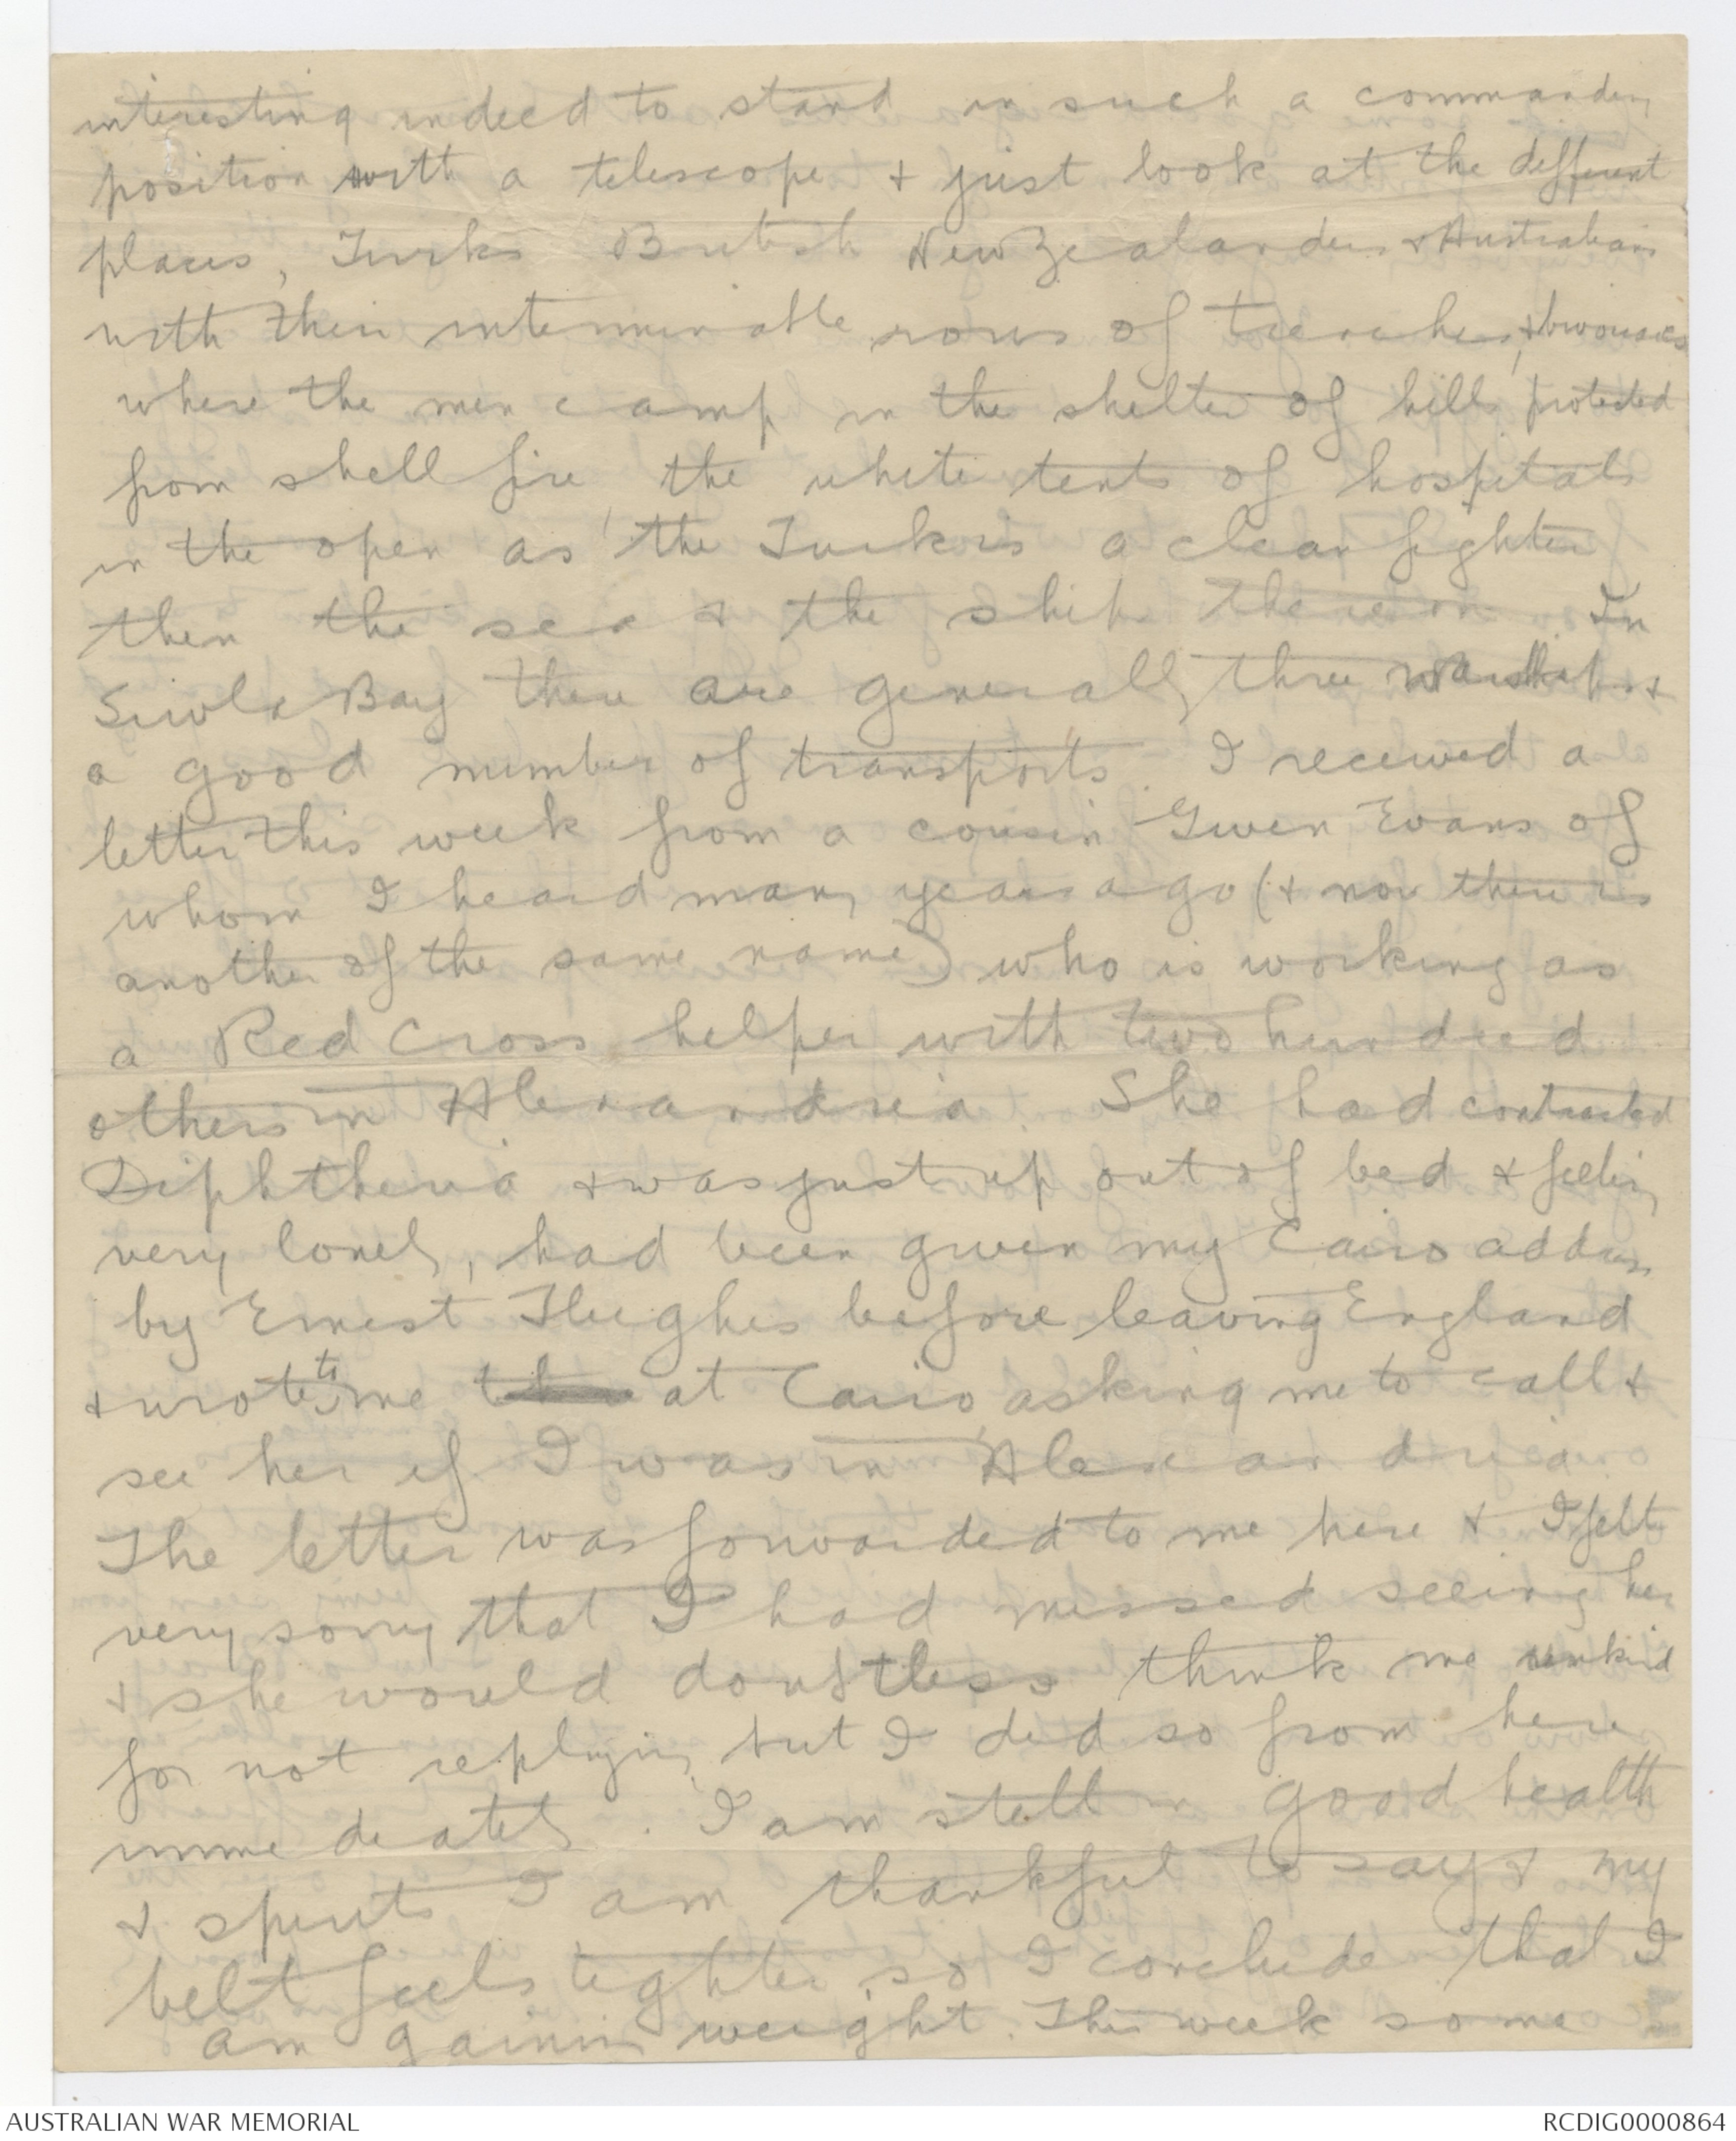 interesting indeed to stand in such a commanding
position with a telescope & just look at the different
places, Turks British New Zealanders & Australians
with their interminable rows of trenches, & bivouacs
where the men camp in the shelter of hills protected
from shell fire, the white tents of hospitals
in the open as the Turk is a clean fighter
then the sea & the ships thereon. In
Suvla Bay there are generally three Warships &
a good number of transports. I received a
letter this week from a cousin Gwen Evans of
whom I heard many years ago (& now there is
another of the same name) who is working as
a Red Cross helper with two hundred
others in Alexandria. She had contracted
Diphtheria & was just up out of bed & feeling
very lonely, had been given my Cairo address
by Ernest Hughes before leaving England
& wrote to me at Cairo, asking me to call &
see her if I was in Alexandria.
The letter was forwarded to me here & I felt
very sorry that I had missed seeing her
& she would doubtless think me unkind
for not replying, but I did so from here
immediately. I am still in good health
& spirits I am thankful to say & my
belt feels tighter so I conclude that I
am gaining weight. This week some
AUSTRALIAN WAR MEMORIAL
RCDIG0000864